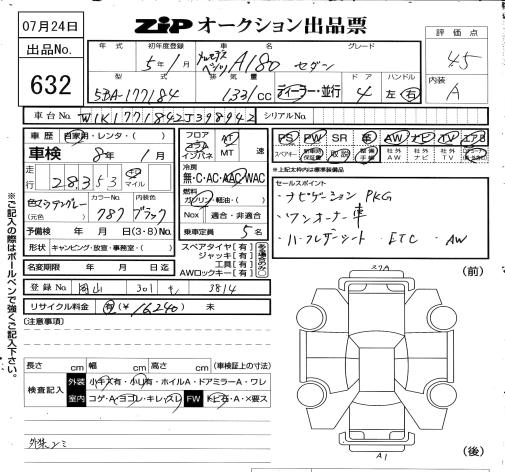 07月24日
ZiP オークション出品票
出品No. 632
評価点 4.5
内装 A
年式 初年度登録 車名 グレード
5年1月 メルセデスベンツ A180 セダン
型式 排気量 ドア ハンドル
5BA-177184 1331CC ディーラー・並行 4 左 右
車台No. W1K1771842J398942 シリアルNo.
車歴 自家用・レンタ・( )
車検 8年1月
走行 28353 km マイル
色 マウンテングレー (元色)
カラーNo. 787
内装色 ブラック
予備検 年 月 日(3・8)No.
形状 キャンピング・放宣・事務室・( )
名変期限 年 月 日迄
フロア コラム インパネ
AT MT 速
冷房 無・C・AC・AAC・WAC
燃料 ガソリン・軽油・( )
Nox 適合・非適合
乗車定員 5名
スペアタイヤ[有]
ジャッキ[有]
工具[有]
AWロックキー[有]
ある場合のみ
PS PW SR 革 AW ナビ TV エアB
スペアキー 新車時保証書 取説 整備手帳 社外AW 社外ナビ 社外TV
※上記太枠内は標準装備品
セールスポイント
・ナビゲーション PKG
・ワンオーナー車
・ハーフレザーシート ・ETC ・AW
登録No. 岡山 301 3814
リサイクル料金 有(¥16240) 未
[注意事項]
長さ cm 幅 cm 高さ cm (車検証上の寸法)
検査記入 外装 小キズ有・小凹有・ホイルA・ドアミラーA・ワレ
室内 コゲ・A・ヨゴレ・キレ・スレ FW トビ石・A・X要ス
(前)
(後)
A1
※ご記入の際はボールペンで強くご記入下さい。